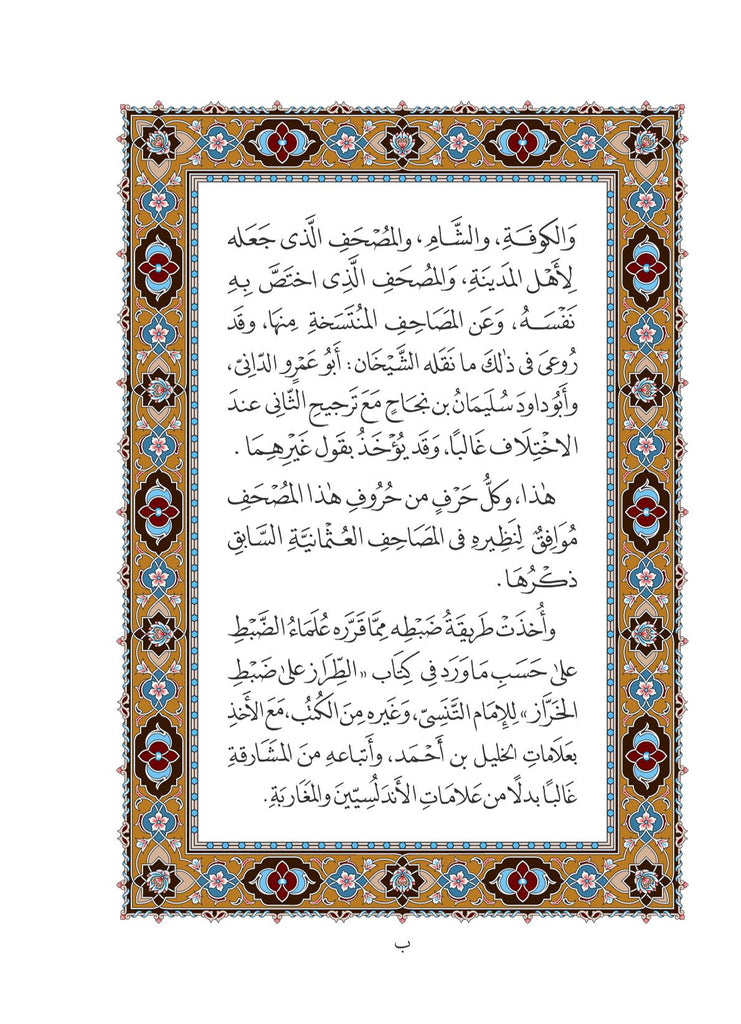 وَالكوفَةِ، والشَّامِ، والمُصْحَفِ الَّذى جَعَله
لِأَهْلِ المَدينَةِ، وَالمُصْحَفِ الَّذِى اختَصَّ بِهِ
نَفْسَهُ، وَعَن المَصَاحِفِ المُنْتَسَخةِ مِنهَا، وقَد
رُوعىَ فى ذٰلكَ ما نَقَله الشَّيْخَان: أبُو عَمْرٍو الدّانِىّ،
وأبُو داودَ سُلَيمَانُ بن نجَاحٍ مَعَ تَرجيحِ الثَّانِى عندَ
الاخْتِلَاف غَالبًا، وَقَد يُؤْخَذُ بقَول غَيْرِهِمَا .
هٰذا، وكلُّ حَرْفٍ من حُرُوفِ هٰذا المُصْحَفِ
مُوَافِقٌ لِنَظِيرِهِ فى المَصَاحِفِ العُثْمانيَّةِ السَّابقِ
ذكْرُهَا .
وأُخذَتْ طَريقَةُ ضَبْطِه مِمَّا قَرَّرَه عُلَمَاءُ الضَّبْطِ
علىٰ حَسَبِ مَا وَرَدَ فِى كِتَاب «الطِّرَاز علىٰ ضَبْطِ
الخَرَّاز» للإِمَام التَّنَسِىّ، وَغَيره مِنَ الكُتُب، مَعَ الأَخذِ
بعَلَامَاتِ الخَليل بن أَحْمَد، وأَتبَاعهِ منَ المَشَارقةِ
غَالبًا بدلًا من عَلَامَاتِ الأَندَلُسِيّينَ والمَغَاربَةِ.
ب